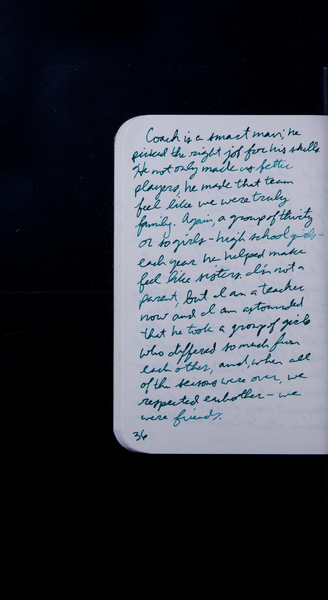 Coach is a smart man; he
picked the right job for his skills.
He not only made us better
players, he made that team
feel like we were truly
family. Again, a group of thirty
or so girls - high school girls -
each year he helped make
feel like sisters. I'm not a
parent, but I am a teacher
now and I am astounded
that he took a group of girls
who differed so much from
each other, and, when all
of the seasons were over, we
respected each other - we
were friends.
36